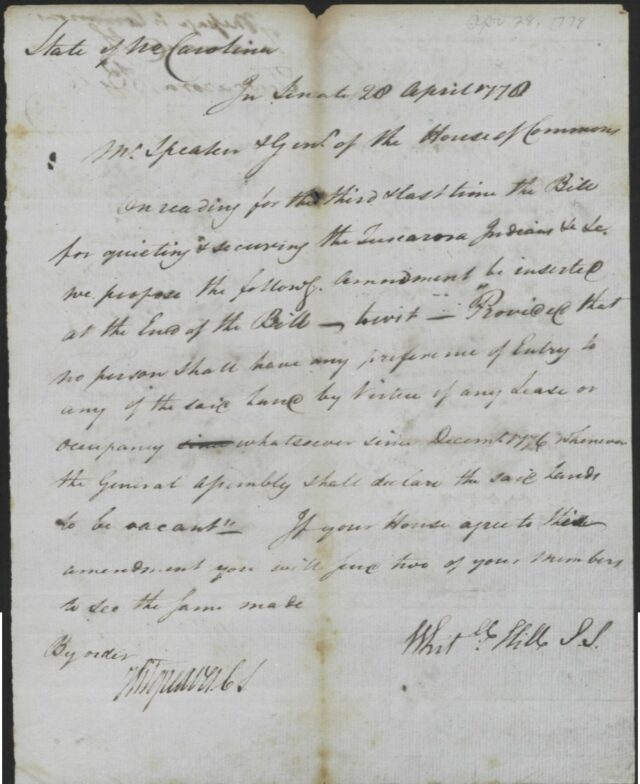 Apr 28, 1778
State of No Carolina
In Senate 28 April 1778
Mr Speaker & Gentn of the House of Commons
On reading for the third & last time the Bill
for quieting & securing the Tuscarora Indians & &c.
we propose the followg. amendment be inserted
at the End of the Bill — towit — "Provided that
no person shall have any preference of Entry to
any of the said Land by Virtue of any Lease or
occupancy whatsoever since Decemr. 1776 whenever
the General Assembly shall declare the said Lands
to be vacant" If your House agree to this
amendment you will send two of your members
to see the same made
By order
Whitll Hill S.S.